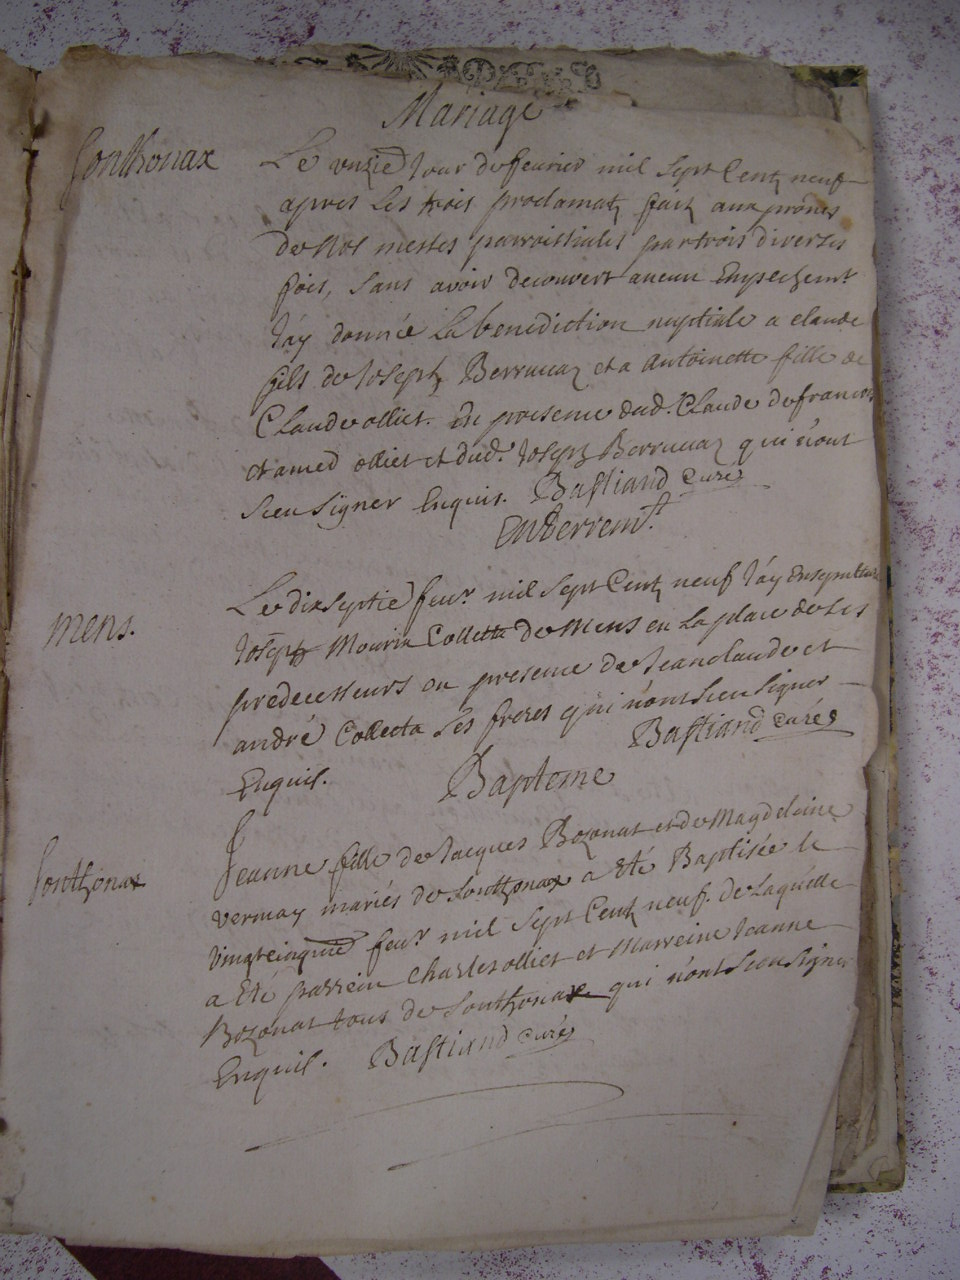 Mariage
Sonthonax
Le unzie Jour de feurier mil sept Centz neuf
apres Les trois proclamatz faitz aux prônes
de Nos messes parroissiales par trois diverses
fois, sans avoir decouvert aucun Enpechemt
J'ay donnée La benediction nuptiale a claude
fils de Joseph Berruuaz et a Antoinette fille de
Claude ollier. En presence dud. Claude de francois
et amed ollier et dud. Joseph Berruuaz qui n'ont
sceu signer Enquis. Bastiand curé
Enterremt.
mens.
Le dixseptie feur mil sept Centz neuf J'ay Ensepulture
Joseph Mourin Collecta de Mens en La place de ses
predecesseurs en presence de Jeanclaude et
andré Collecta ses freres qui n'ont sceu signer
Enquis. Bastiand curé
Bapteme
Sonthonax
Jeanne fille de Jacques Bozonat et de Magdeleine
vernay mariés de Sonthonax a Eté Baptisée le
vingtcinquie feur mil sept Centz neuf. de Laquelle
a Eté parrein Charles ollier et Marreine Jeanne
Bozonat tous de Sonthonax qui n'ont sceu signer
Enquis. Bastiand curé